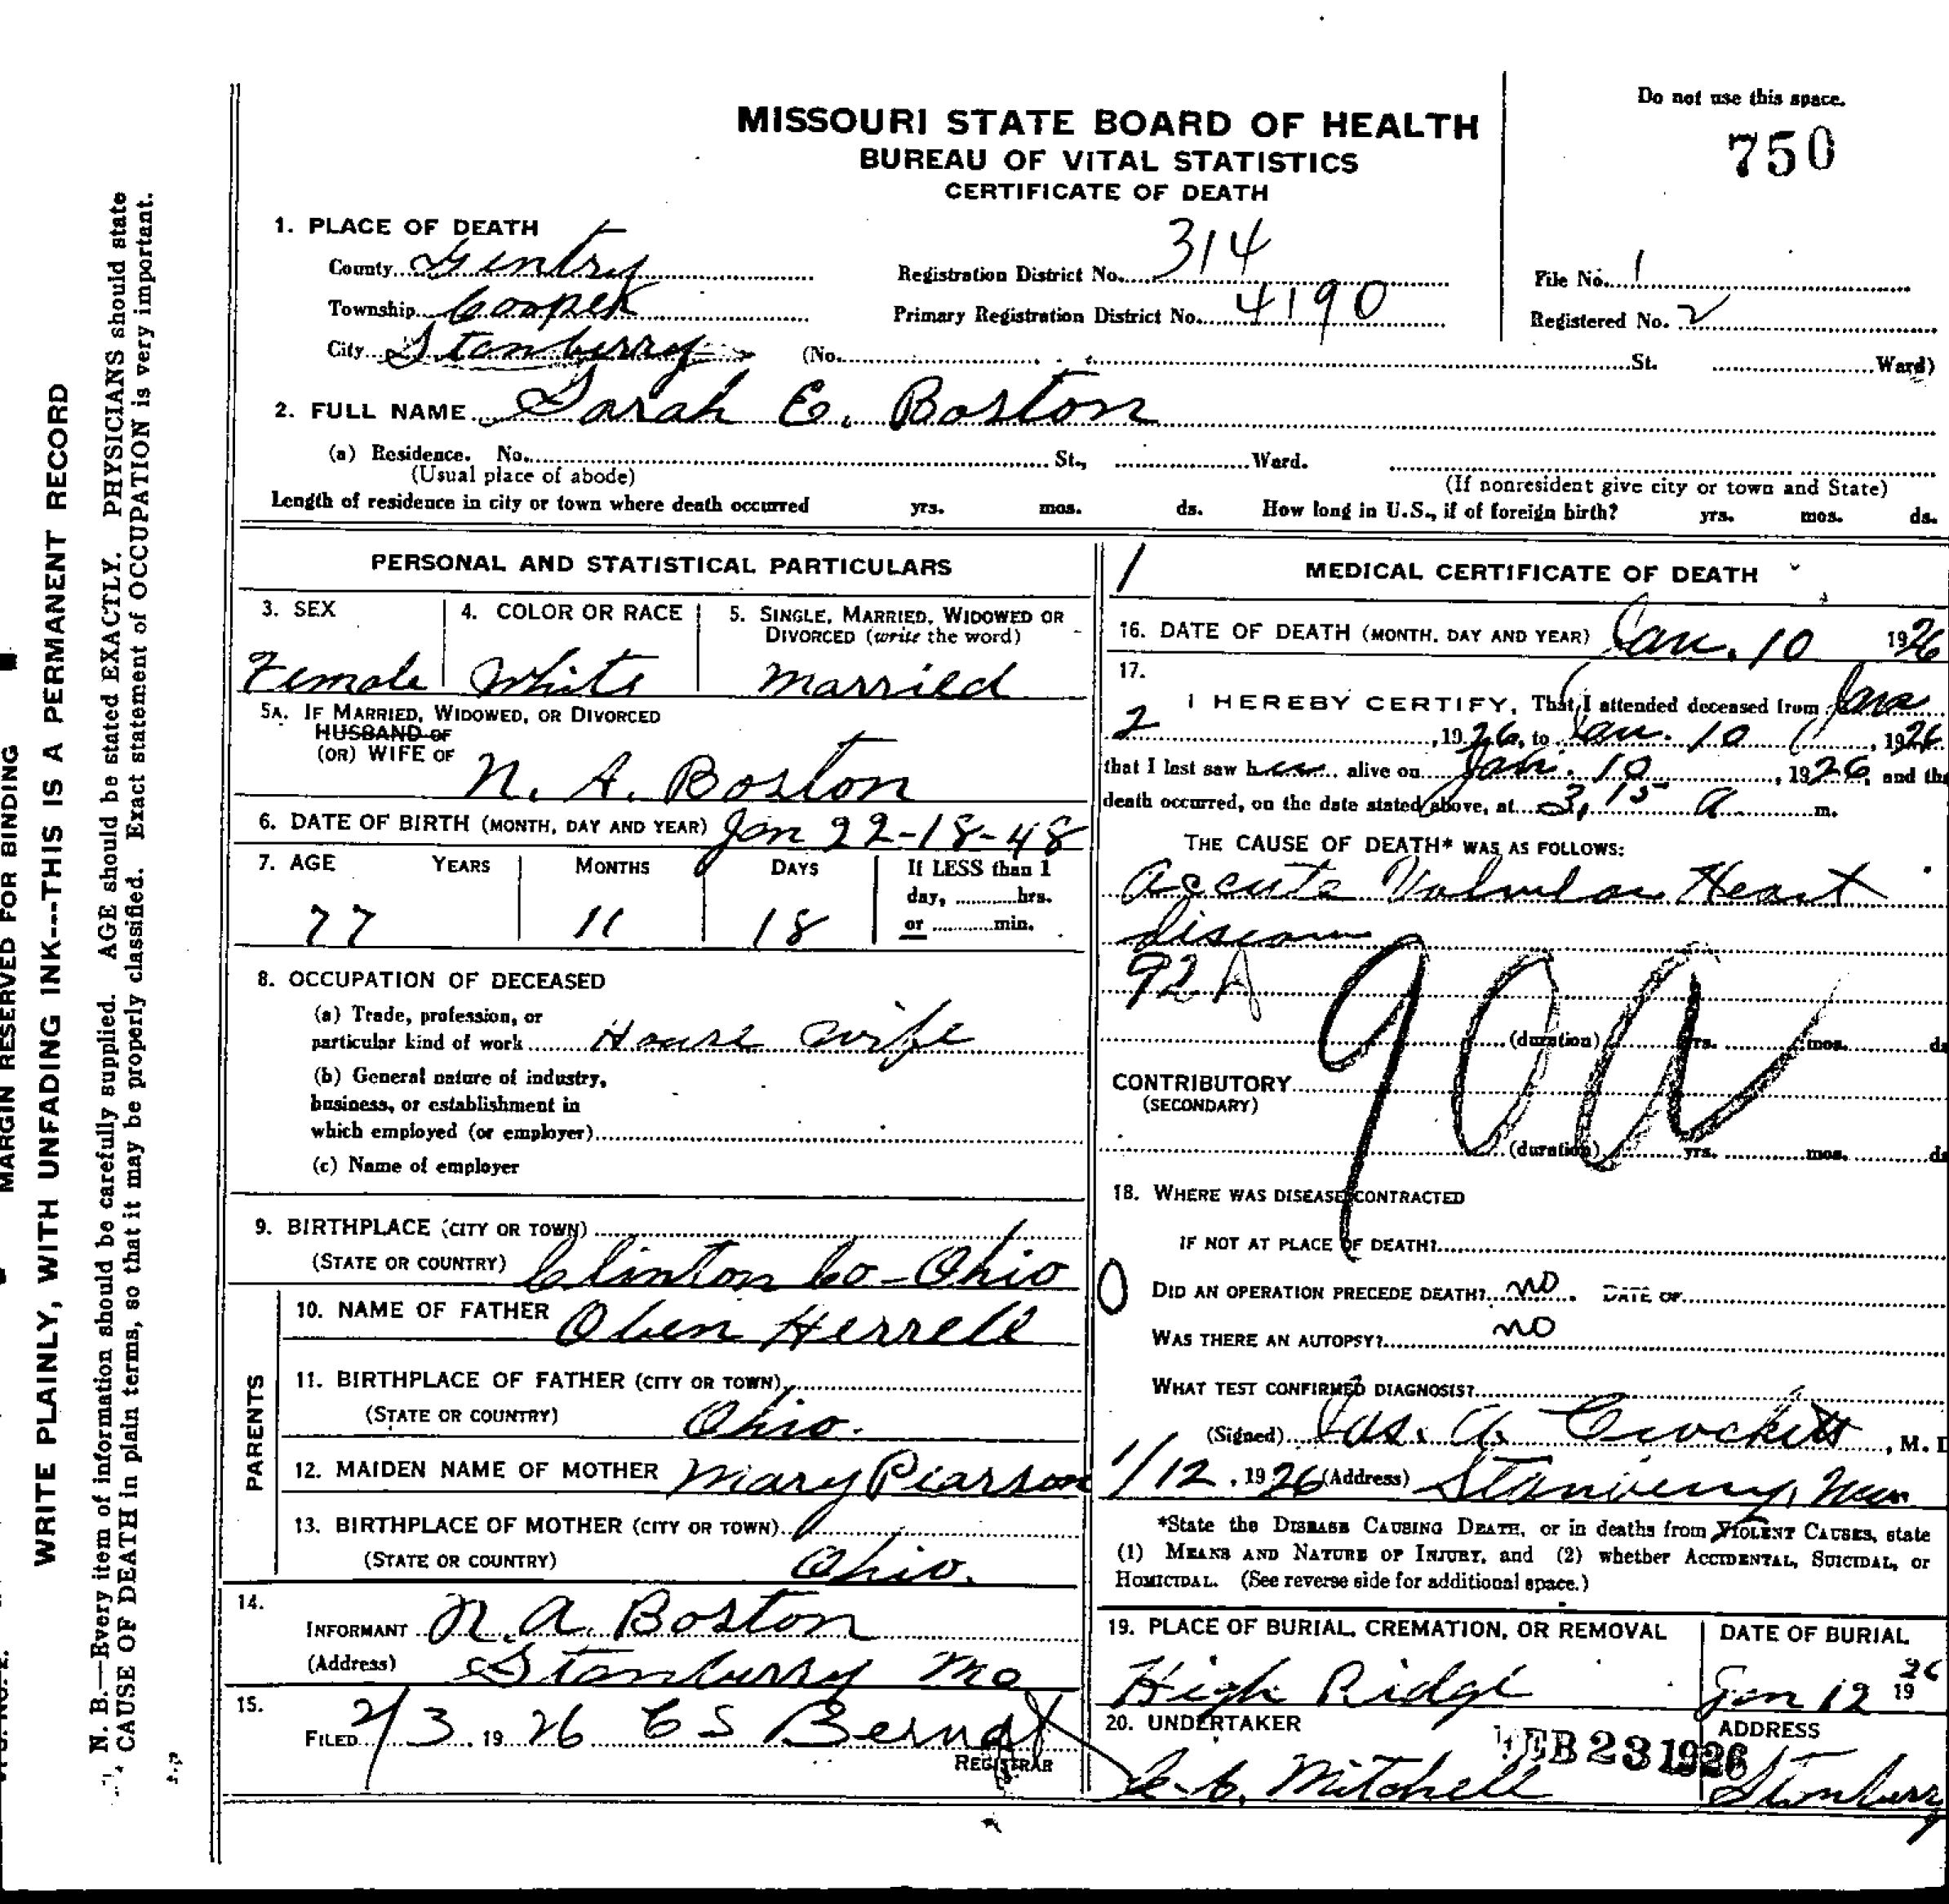 Do not use this space.
750
MISSOURI STATE BOARD OF HEALTH
BUREAU OF VITAL STATISTICS
CERTIFICATE OF DEATH
1. PLACE OF DEATH
County Gentry
Registration District No. 314
File No. 1
Township Cooper
Primary Registration District No. 4190
Registered No. 2
City Stanberry (No. St. Ward)
2. FULL NAME Sarah E. Boston
(a) Residence. No. St., Ward.
(Usual place of abode)
(If nonresident give city or town and State)
Length of residence in city or town where death occurred yrs. mos. ds. How long in U.S., if of foreign birth? yrs. mos. ds.
PERSONAL AND STATISTICAL PARTICULARS
3. SEX
4. COLOR OR RACE
5. SINGLE, MARRIED, WIDOWED OR
DIVORCED (write the word)
Female
White
Married
5A. IF MARRIED, WIDOWED, OR DIVORCED
HUSBAND OF
(OR) WIFE OF
N. A. Boston
6. DATE OF BIRTH (MONTH, DAY AND YEAR) Jan 22-18-48
7. AGE YEARS MONTHS DAYS If LESS than 1
day, hrs.
or min.
77 11 18
8. OCCUPATION OF DECEASED
(a) Trade, profession, or
particular kind of work House wife
(b) General nature of industry,
business, or establishment in
which employed (or employer)
(c) Name of employer
9. BIRTHPLACE (CITY OR TOWN)
(STATE OR COUNTRY) Clinton Co - Ohio
PARENTS
10. NAME OF FATHER Oben Herrell
11. BIRTHPLACE OF FATHER (CITY OR TOWN)
(STATE OR COUNTRY) Ohio.
12. MAIDEN NAME OF MOTHER Mary Piarson
13. BIRTHPLACE OF MOTHER (CITY OR TOWN)
(STATE OR COUNTRY) Ohio.
14.
INFORMANT N. A. Boston
(Address) Stanberry Mo
15.
FILED 2/3, 1926 C S Bernat
REGISTRAR
1
MEDICAL CERTIFICATE OF DEATH
16. DATE OF DEATH (MONTH, DAY AND YEAR) Jan. 10 1926
17.
I HEREBY CERTIFY, That I attended deceased from Jan
2, 1926, to Jan. 10, 1926
that I last saw her alive on Jan. 10, 1926, and tha
death occurred, on the date stated above, at 3,15 a m.
THE CAUSE OF DEATH* WAS AS FOLLOWS:
Accute Valvular Heart
disease
92A
90a
(duration) yrs. mos. ds
CONTRIBUTORY
(SECONDARY)
(duration) yrs. mos. ds
18. WHERE WAS DISEASE CONTRACTED
IF NOT AT PLACE OF DEATH?
0 DID AN OPERATION PRECEDE DEATH? no. DATE OF
WAS THERE AN AUTOPSY? no
WHAT TEST CONFIRMED DIAGNOSIS?
(Signed) Jas. A Crockett, M. D
1/12, 1926 (Address) Stanberry,
*State the DISEASE CAUSING DEATH, or in deaths from VIOLENT CAUSES, state
(1) MEANS AND NATURE OF INJURY, and (2) whether ACCIDENTAL, SUICIDAL, or
HOMICIDAL. (See reverse side for additional space.)
19. PLACE OF BURIAL, CREMATION, OR REMOVAL
DATE OF BURIAL
High Ridge
Jan 12 1926
20. UNDERTAKER
FEB 23 1926
ADDRESS
Mitchell
Stanberry
MARGIN RESERVED FOR BINDING
WRITE PLAINLY, WITH UNFADING INK---THIS IS A PERMANENT RECORD
N. B.—Every item of information should be carefully supplied. AGE should be stated EXACTLY. PHYSICIANS should state
CAUSE OF DEATH in plain terms, so that it may be properly classified. Exact statement of OCCUPATION is very important.